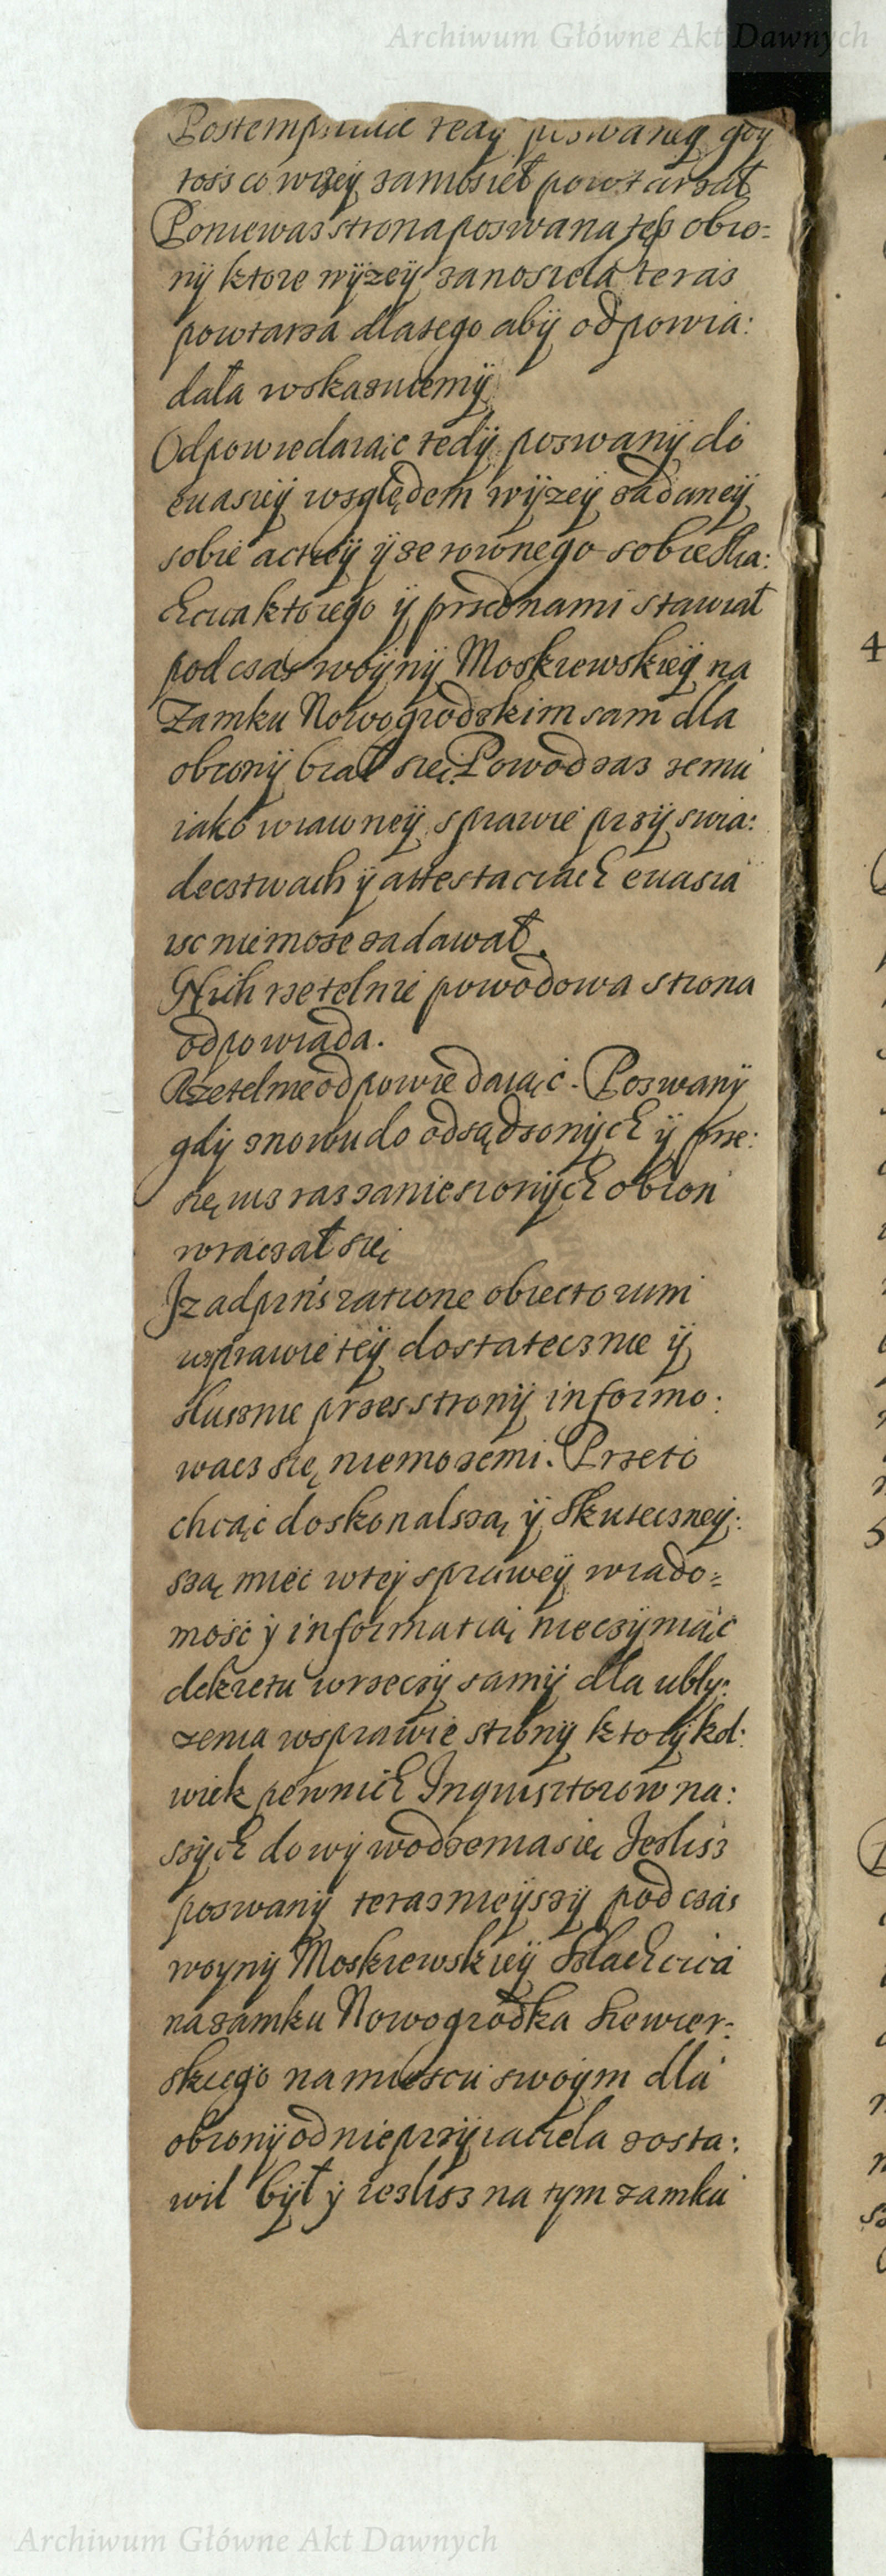 Archiwum Główne Akt Dawnych
tedy gdy
toss co wyzey zanosieł powtarzał
Poniewaz strona pozwana teß obro=
ny ktore wÿzeÿ zanosieła teraz
powtarza dlatego abÿ odpowia:
dała wskazuiemÿ
Odpowiedaiąc tedÿ pozwanÿ do
euasieÿ względem wÿzeÿ zadaneÿ
sobie actieÿ ÿ ze rownego sobie Sla:
chcica ktorego ÿ przednami stawiał
podczas woÿnÿ Moskiewskieÿ na
Zamku Nowogrodzkim sam dla
obronÿ brał się. Powod zas zemu
iako wiawneÿ sprawie przÿ swia:
dectwach ÿ attestaciach euasia
isc niemoze zadawał.
Niih rzetelnie powodowa strona
odpowiada.
Rzetelnie odpowiedaiąć. Pozwanÿ
gdÿ znowu do odsądzonÿch ÿ prze:
się iusz raz zaniesionÿch obron
wracał się
Iz ad pñs ratione obiectorum
wsprawie teÿ dostatecznie ÿ
słusznie przes stronÿ informo:
wacz się niemozemi. Przeto
chcąc doskonalszą ÿ skutecznieÿ:
szą mieć wtej sprawey wiado=
mość ÿ informatią nieczÿniąc
dekretu wrzeczÿ samÿ dla ublÿ:
zenia wsprawie stronÿ ktorÿkol:
wiek pewnich Inquisitorow na:
szÿch do wÿwodzenia się Jeslisz
pozwanÿ teraznieÿszÿ podczas
woynÿ Moskiewskieÿ Szlachcica
nazamku Nowogrodka Siewier:
skiego na miescu swoÿm dla
obronÿ od nieprzÿiaciela zosta:
wil bÿł ÿ ieslisz na tym zamku
Archiwum Główne Akt Dawnych